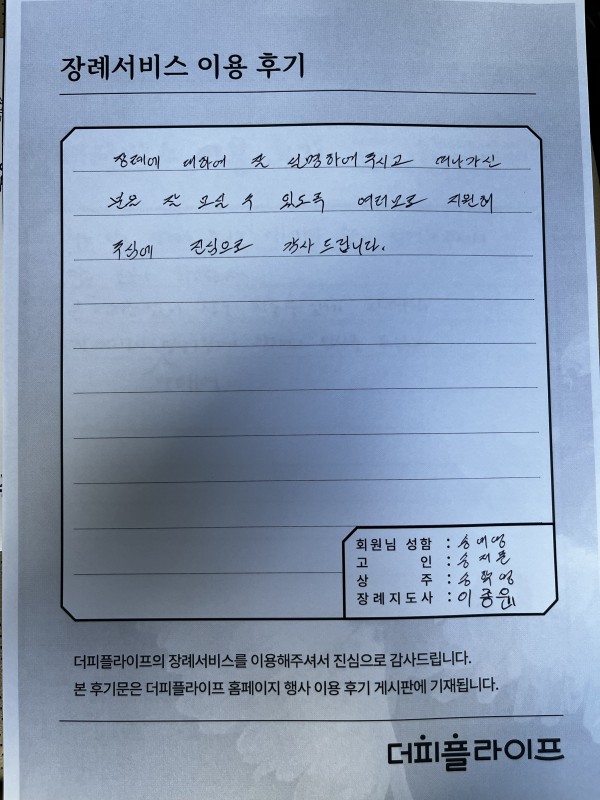 장례서비스 이용 후기
장례에 대하여 잘 설명하여 주시고 떠나가신
분을 잘 모실 수 있도록 여러모로 지원해
주심에 진심으로 감사 드립니다.
회원님 성함 :
고 인 :
상 주 :
장례지도사 : 이종윤
더피플라이프의 장례서비스를 이용해주셔서 진심으로 감사드립니다.
본 후기문은 더피플라이프 홈페이지 행사 이용 후기 게시판에 기재됩니다.
더피플라이프